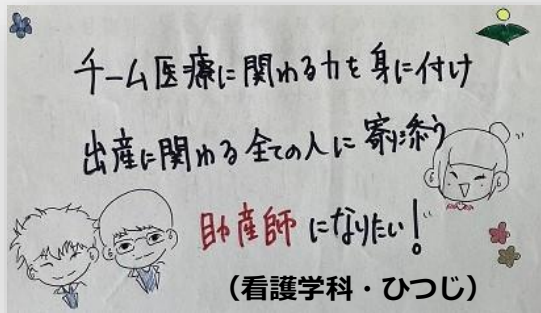 チーム医療に関わる力を身に付け
出産に関わる全ての人に寄り添う
助産師になりたい！
（看護学科・ひつじ）